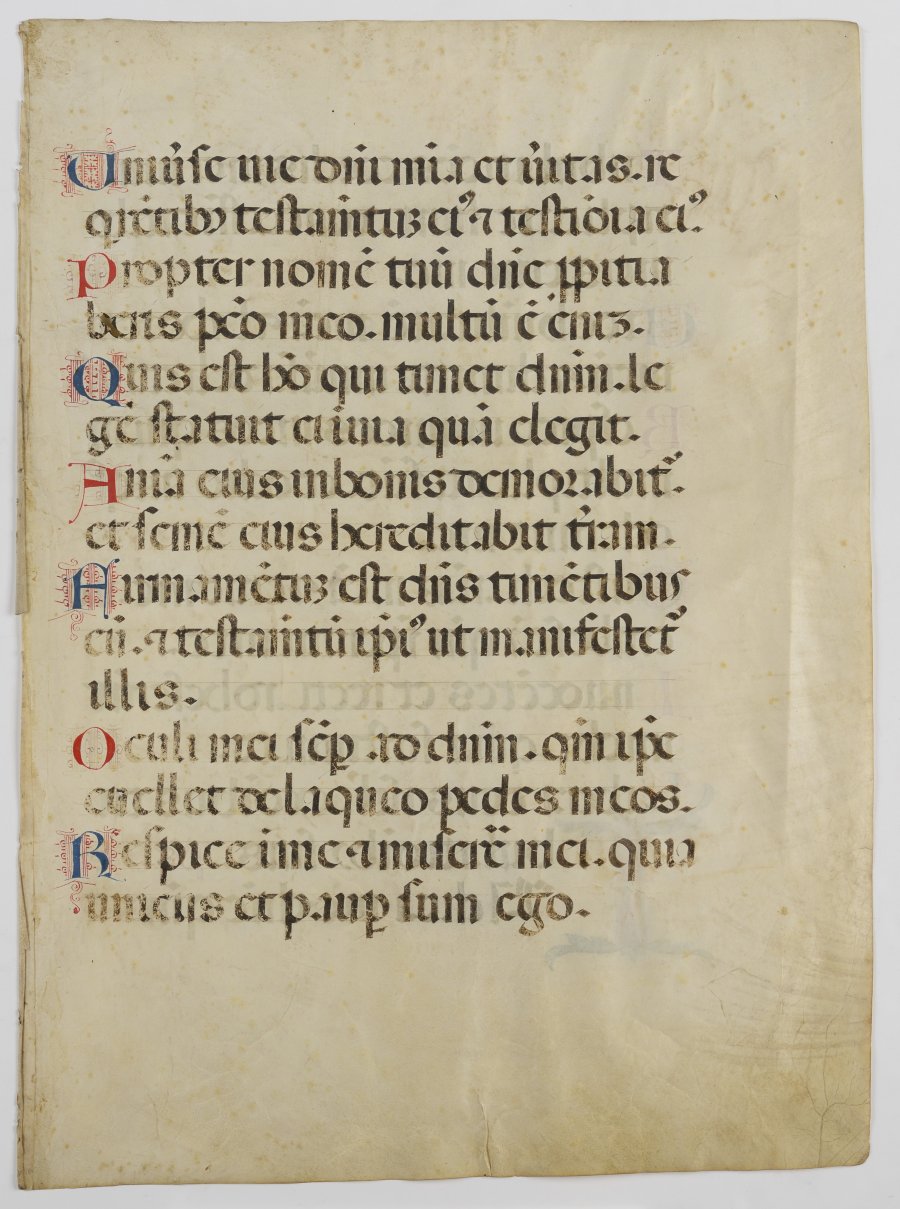 Uniūse uie dn̄i mīa et ūitas. re
qr̄ētibꝰ testam̄tuꝫ eiꝰ ⁊ testiōia eiꝰ
Propter nomē tuū dn̄e ꝓpitia
beris pc̄o meo. multū ē eniꝫ.
Quis est hō qui timet dnm̄. le
gē statuit ei iuia quā elegit.
Anīa eius in bonis demorabit᷑.
et semē eius hereditabit tr̄am.
Firmamētuꝫ est dn̄s timētibus
eū. ⁊ testam̄tū ip̄iꝰ ut manifestet᷑
illis.
Oculi mei sēꝑ ad dnm̄. qm̄ ip̄e
euellet de laqueo pedes meos.
Respice ī me ⁊ miserē mei. quia
unicus et pauꝑ sum ego.